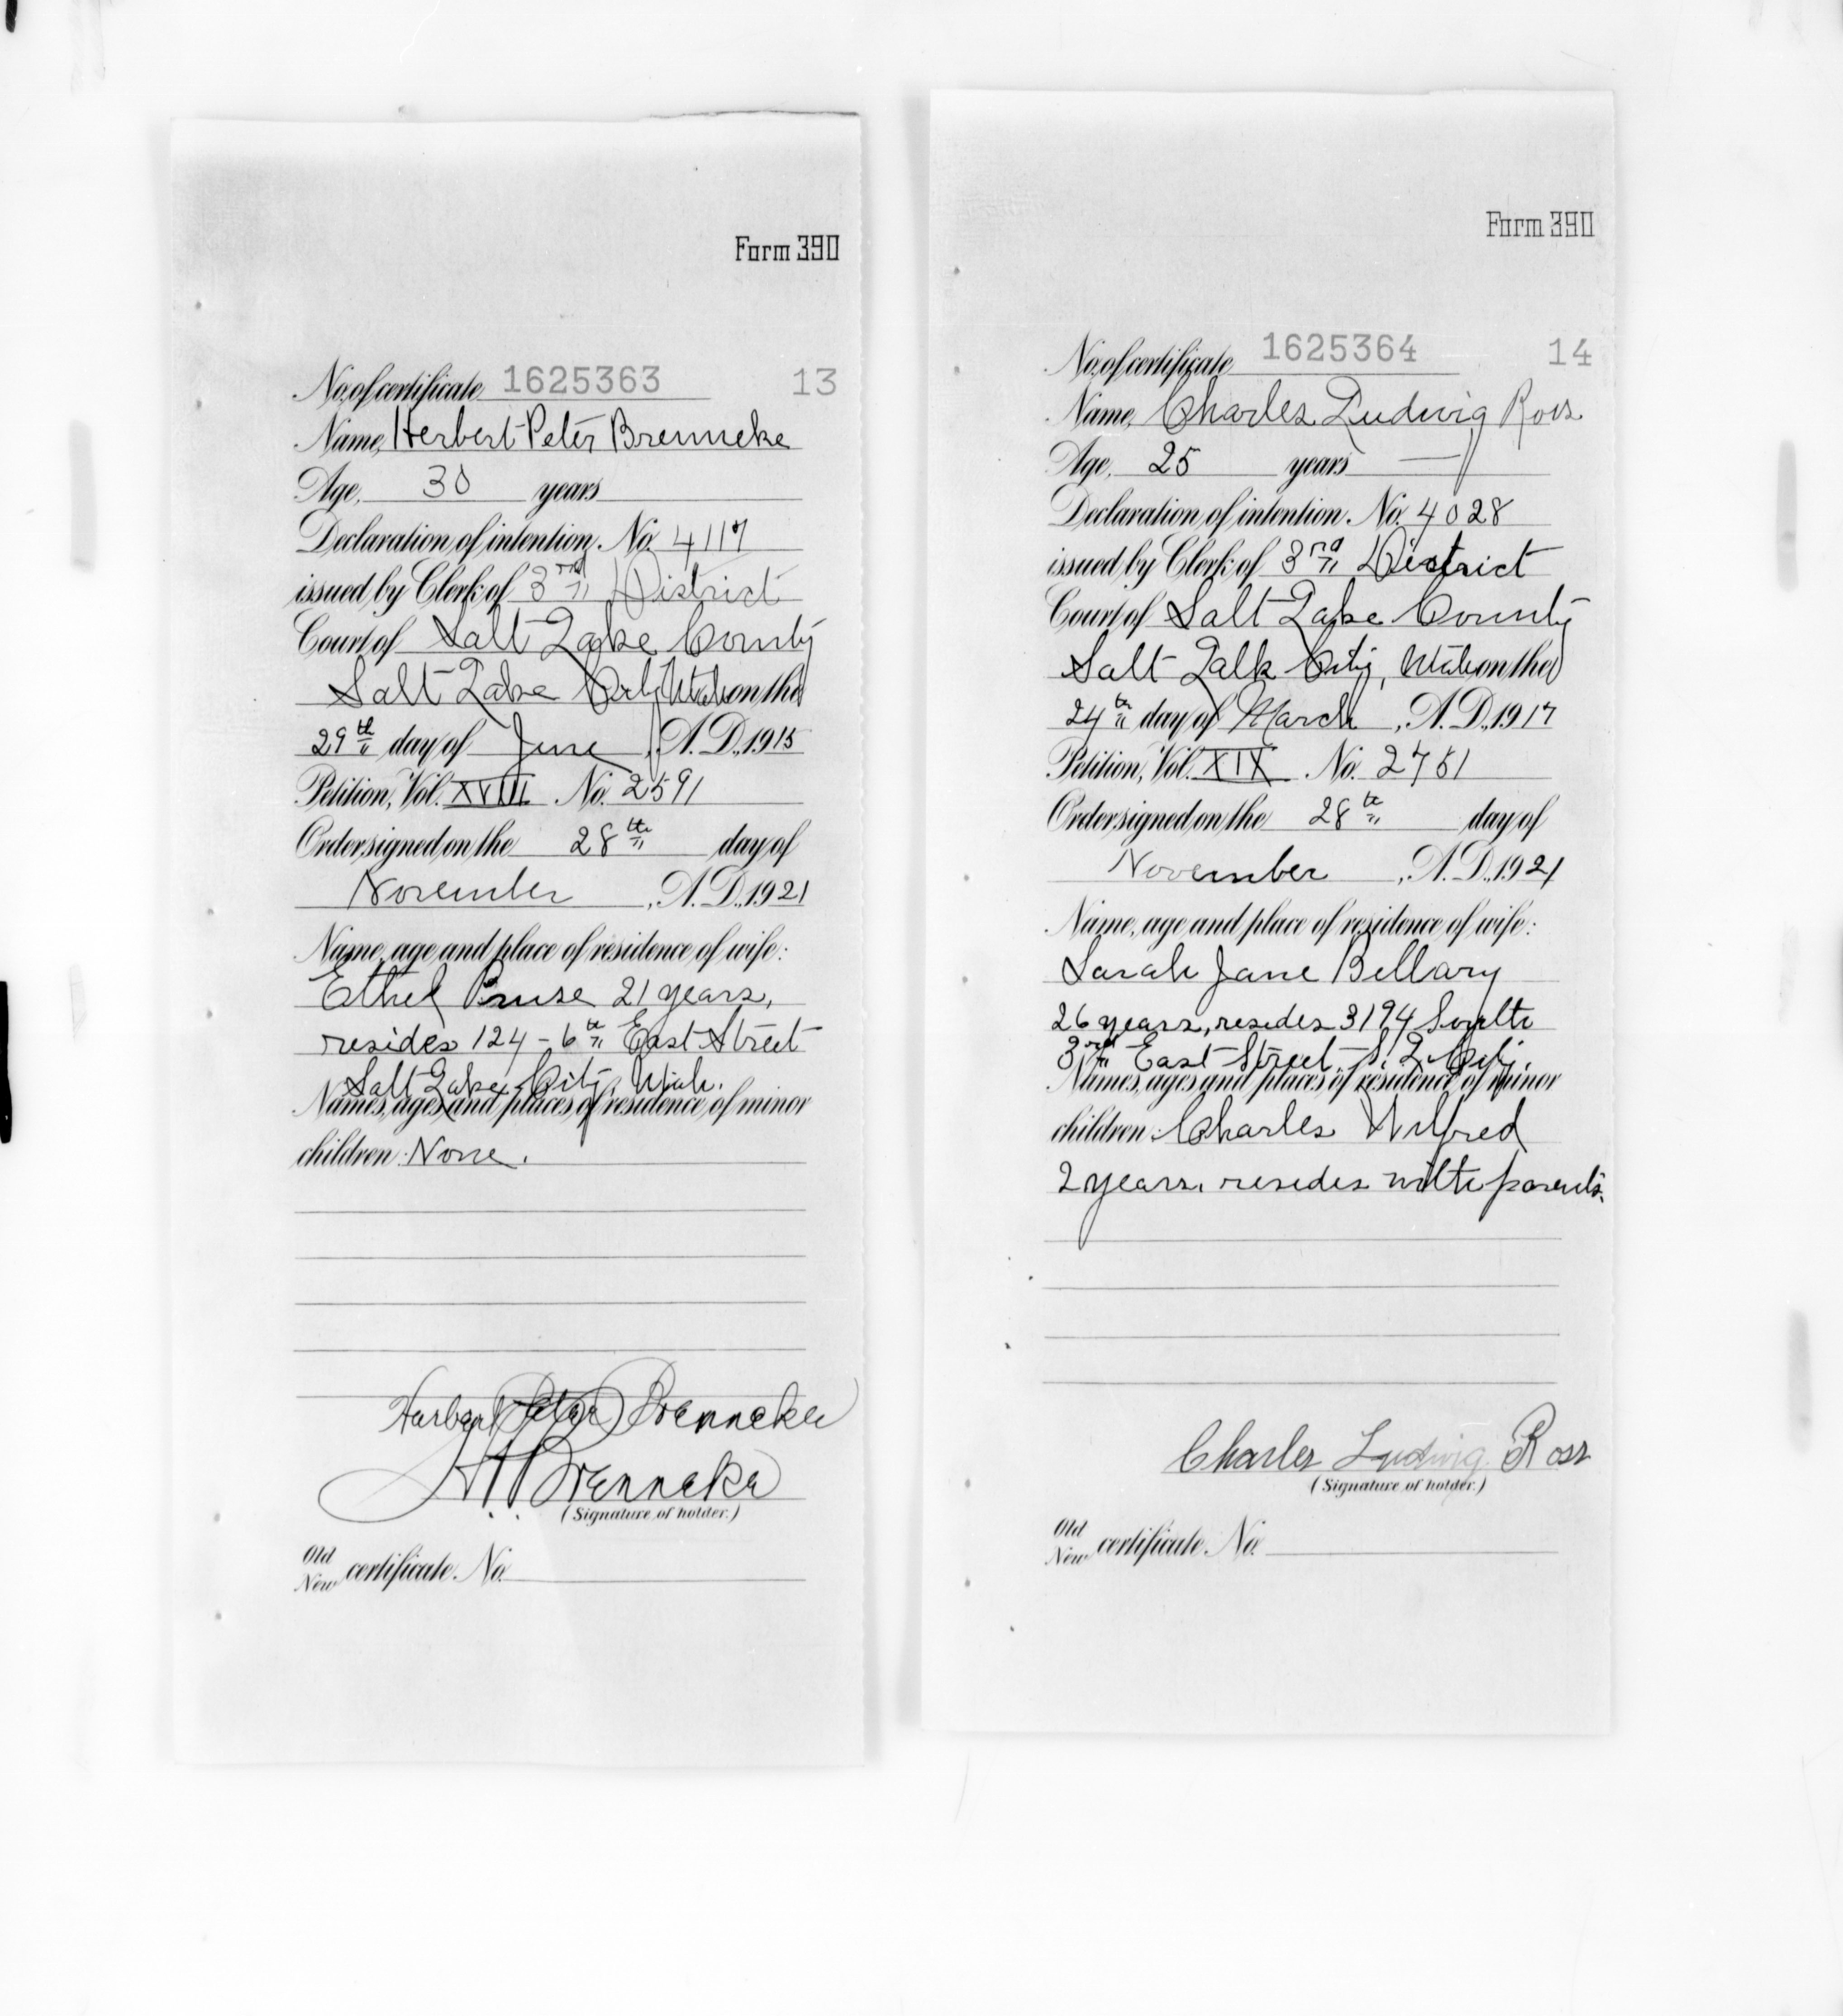 Form 390
No. of certificate 1625363 13
Name, Herbert Peter Brenneke
Age, 30 years
Declaration of intention, No. 4117
issued by Clerk of 3rd District
Court of Salt Lake County
Salt Lake City Utah on the
29th day of June, A.D., 1915
Petition, Vol. XVIII No. 2591
Order signed on the 28th day of
November, A.D., 1921
Name, age and place of residence of wife:
Ethel 21 years,
resides 124 - 6th East Street
Salt Lake City, Utah.
Names, ages and places of residence of minor
children: None.
Herbert Peter Brenneke
H.P. Brenneke
(Signature of holder.)
Old
New certificate No.
Form 390
No. of certificate 1625364 14
Name, Charles Ludwig Ross
Age, 25 years
Declaration of intention, No. 4028
issued by Clerk of 3rd District
Court of Salt Lake County
Salt Lalk City, Utah on the
24th day of March, A.D., 1917
Petition, Vol. XIX No. 2761
Order signed on the 28th day of
November, A.D., 1921
Name, age and place of residence of wife:
Sarah Jane Bellary
26 years, resides 3194 South
3rd East Street, S. L. City.
Names, ages and places of residence of minor
children: Charles Wilfred
2 years, resides with parents.
Charles Ludwig Ross
(Signature of holder.)
Old
New certificate No.